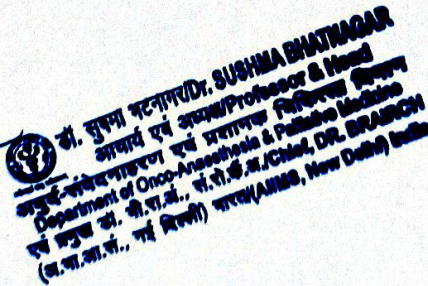 डॉ. सुषमा भटनागर/Dr. SUSHMA BHATNAGAR
आचार्य एवं अध्यक्ष/Professor & Head
अर्बुद-संवेदनाहरण एवं प्रशामक चिकित्सा विभाग
Department of Onco-Anaesthesia & Palliative Medicine
एवं प्रमुख डॉ. बी.रा.अं., सं.रो.कैं.अ./Chief, DR. BRAIRCH
(अ.भा.आ.सं., नई दिल्ली) भारत/(AIIMS, New Delhi) India